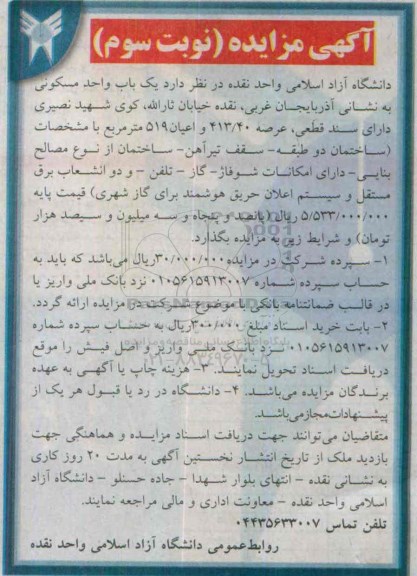 آگهی مزایده (نوبت سوم)
دانشگاه آزاد اسلامی واحد نقده در نظر دارد یک باب واحد مسکونی
به نشانی آذربایجان غربی، نقده خیابان ثارالله، کوی شهید نصیری
دارای سند قطعی، عرصه ۴۱۳/۴۰ و اعیان ۵۱۹ مترمربع با مشخصات
(ساختمان دو طبقه- سقف تیرآهن- ساختمان از نوع مصالح
بنایی- دارای امکانات شوفاژ- گاز - تلفن - و دو انشعاب برق
مستقل و سیستم اعلان حریق هوشمند برای گاز شهری) قیمت پایه
۵/۵۳۳/۰۰۰/۰۰۰ ریال (پانصد و پنجاه و سه میلیون و سیصد هزار
تومان) و شرایط زیر به مزایده بگذارد.
۱- سپرده شرکت در مزایده ۳۰/۰۰۰/۰۰۰ ریال می‌باشد که باید به
حساب سپرده شماره ۰۱۰۵۶۱۵۹۱۳۰۰۷ نزد بانک ملی واریز یا
در قالب ضمانتنامه بانکی با موضوع شرکت در مزایده ارائه گردد.
۲- بابت خرید اسناد مبلغ ۳۰۰/۰۰۰ ریال به حساب سپرده شماره
۰۱۰۵۶۱۵۹۱۳۰۰۷ نزد بانک ملی واریز و اصل فیش را موقع
دریافت اسناد تحویل نمایند. ۳- هزینه چاپ یا آگهی به عهده
برندگان مزایده می‌باشد. ۴- دانشگاه در رد یا قبول هر یک از
پیشنهادات مجاز می‌باشد.
متقاضیان می‌توانند جهت دریافت اسناد مزایده و هماهنگی جهت
بازدید ملک از تاریخ انتشار نخستین آگهی به مدت ۲۰ روز کاری
به نشانی نقده - انتهای بلوار شهدا - جاده حسنلو - دانشگاه آزاد
اسلامی واحد نقده - معاونت اداری و مالی مراجعه نمایند.
تلفن تماس ۰۴۴۳۵۶۳۳۰۰۷
روابط‌عمومی دانشگاه آزاد اسلامی واحد نقده